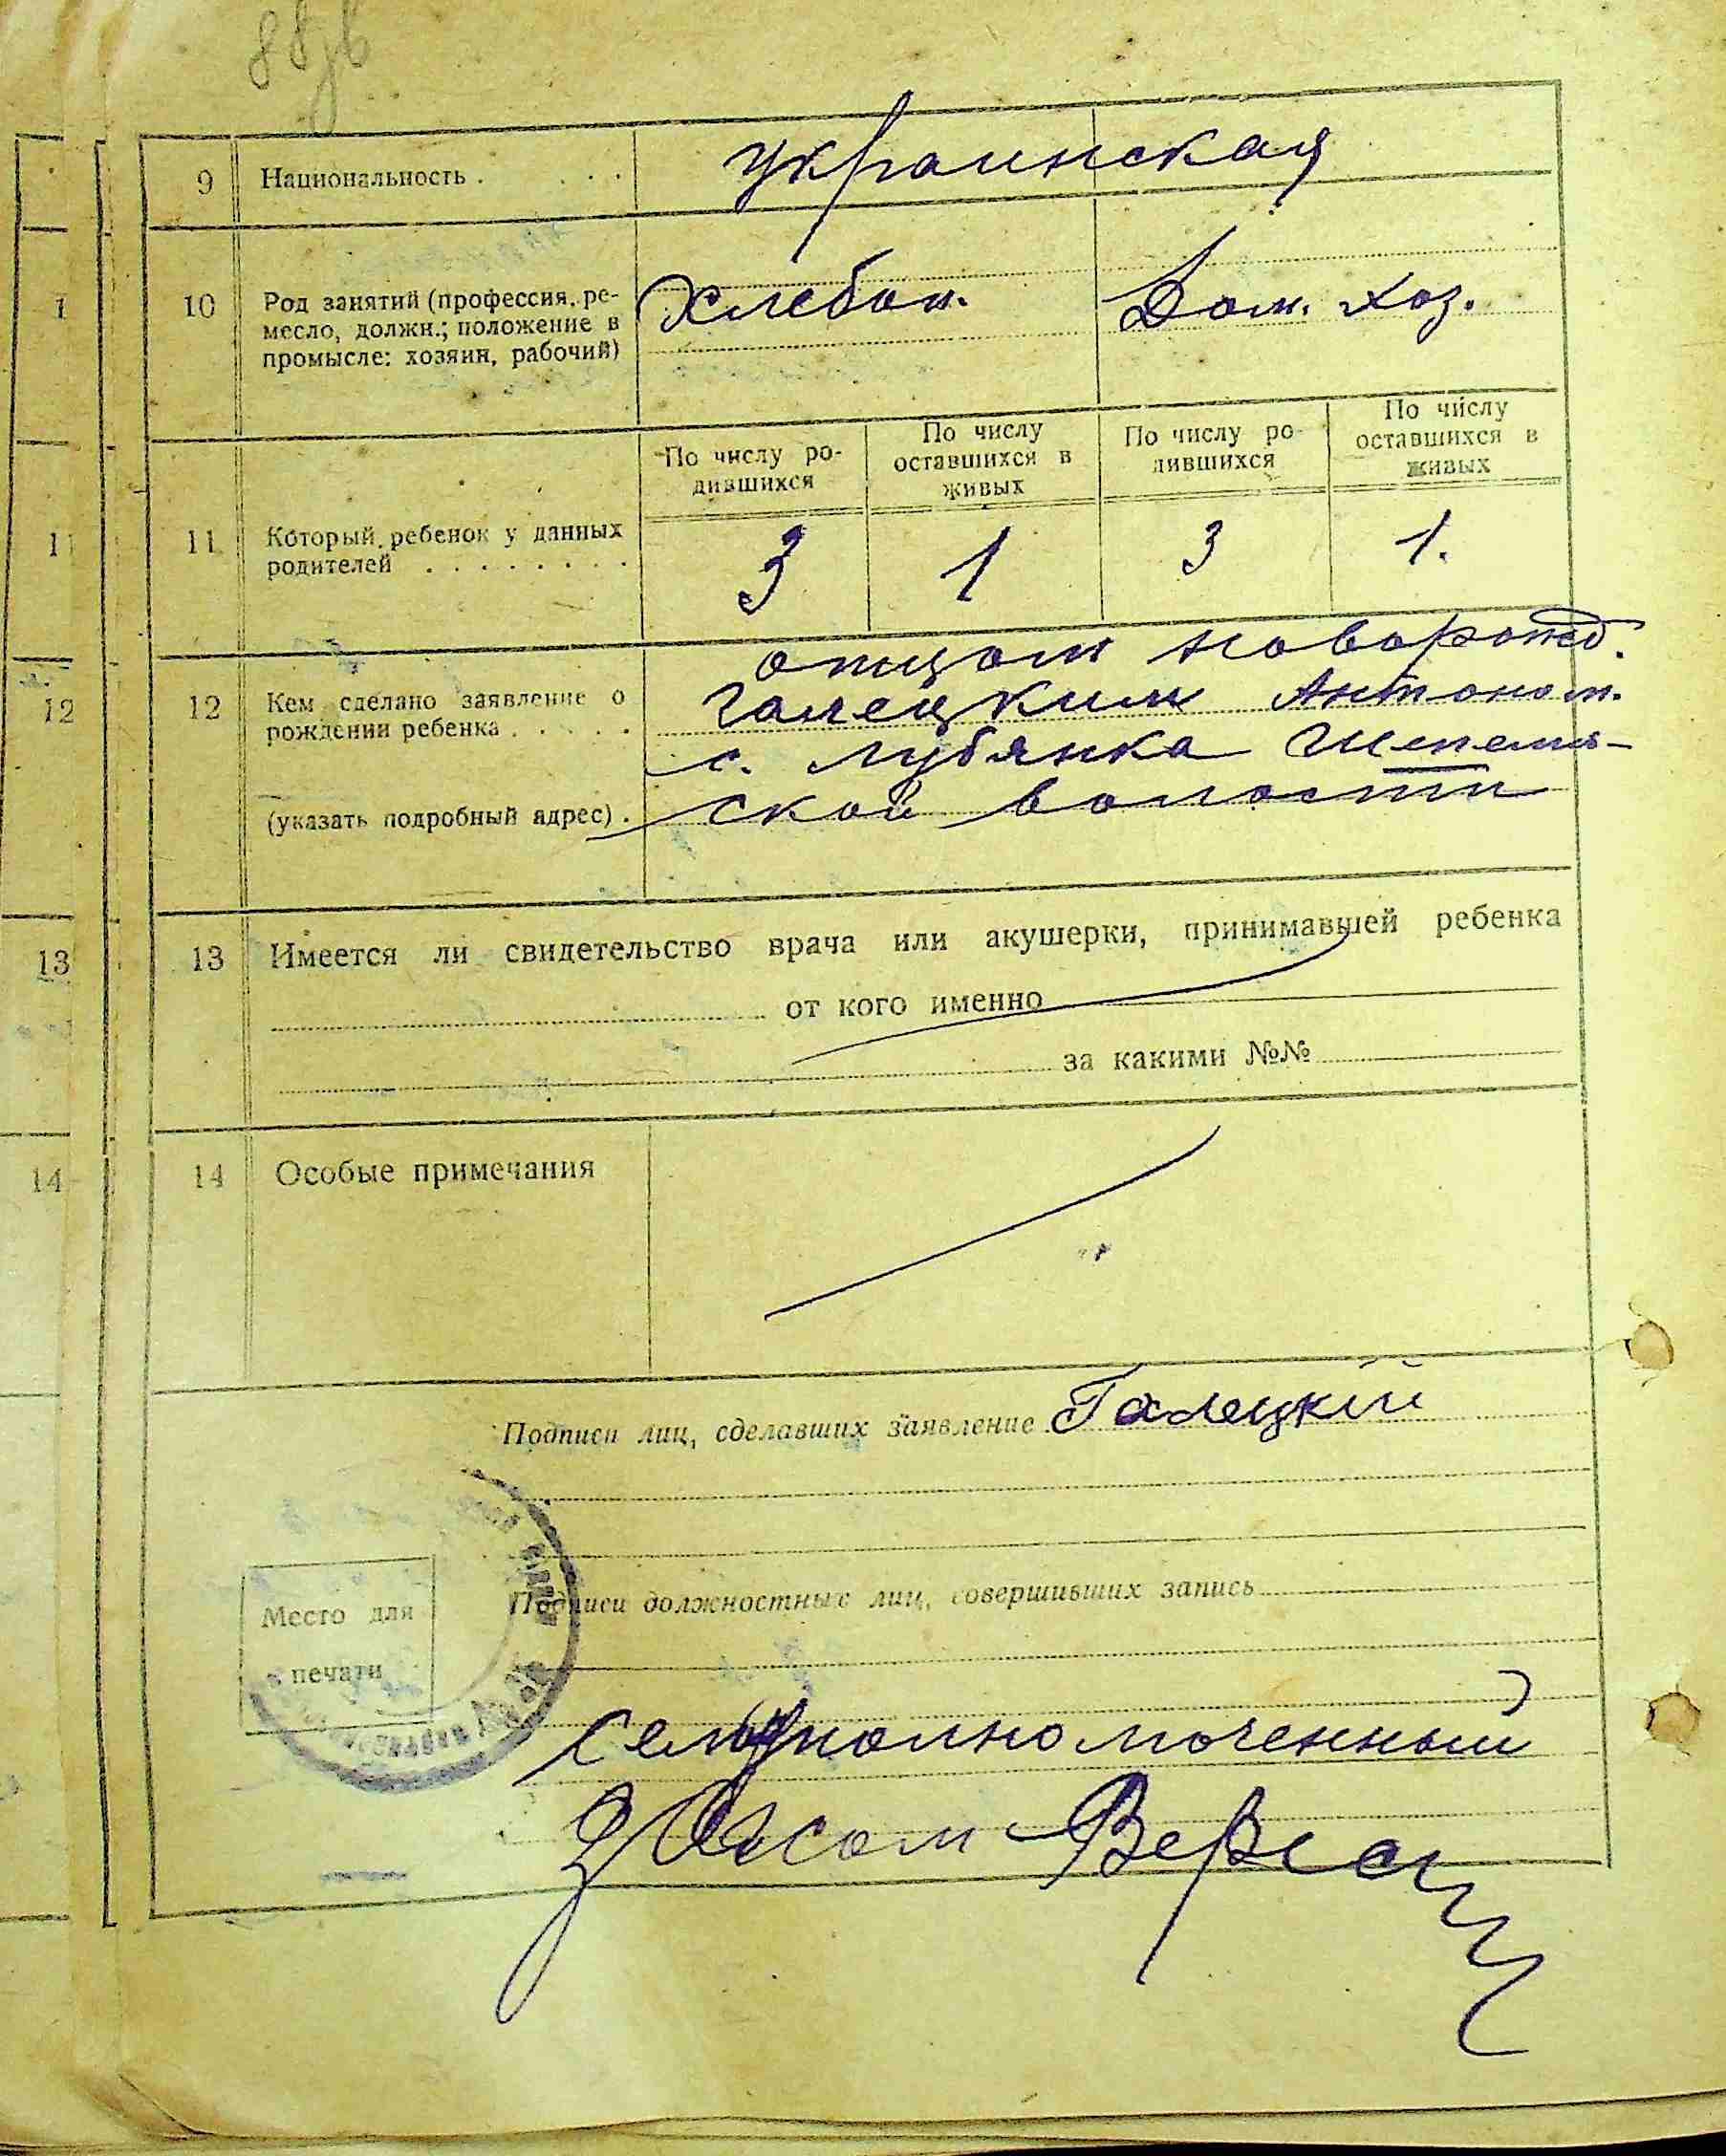 9 Национальность . . . . украинская
10 Род занятий (профессия, ре-
месло, должн.; положение в
промысле: хозяин, рабочий)
Хлебоп. Дом. хоз.
По числу ро-
дившихся
По числу
оставшихся в
живых
По числу ро-
дившихся
По числу
оставшихся в
живых
11 Который ребенок у данных
родителей . . . . . . . .
3 1 3 1.
12 Кем сделано заявление о
рождении ребенка . . . . .
(указать подробный адрес) .
отцом новорожд.
Галецким Антоном.
с. Лубянка Шепели-
ской волости
13 Имеется ли свидетельство врача или акушерки, принимавшей ребенка
от кого именно
за какими №№
14 Особые примечания
Подписи лиц, сделавших заявление Галецкій
Подписи должностных лиц, совершивших запись
Место для
печати
Селуполномоченный
1
11
12
13
14